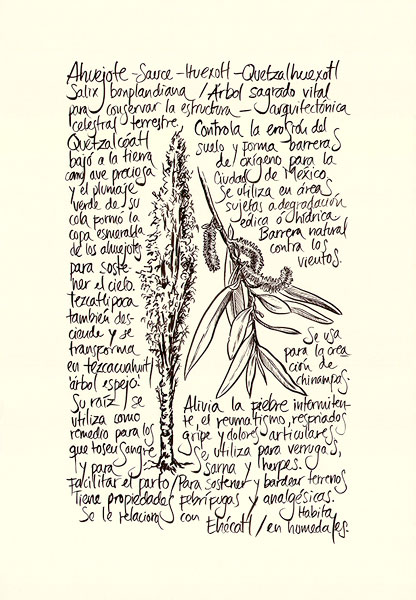 Ahuejote - Sauce - Huexotl - Quetzalhuexotl
Salix bonplandiana / Árbol sagrado vital
para conservar la estructura - arquitectónica
celestial terrestre.
Quetzalcóatl
bajó a la tierra
como ave preciosa
y el plumaje
verde de su
cola formó la
copa esmeralda
de los ahuejotes
para soste-
ner el cielo.
Tezcatlipoca
también des-
ciende y se
transforma
en tezcacuahuitl
árbol espejo.
Su raíz / se
utiliza como
remedio para los
que tosen sangre
y para
Facilitar el parto / Para sostener y bardear terrenos
Controla la erosión del
suelo y forma barreras
de oxígeno para la
Ciudad de México.
Se utiliza en áreas
sujetas a degradación
eólica ó hídrica.
Barrera natural
contra los
vientos.
Se usa
para la crea
ción de
chinampas.
Alivia la fiebre intermiten-
te, el reumatismo, resfriados
gripe y dolores articulares.
Se utiliza para verrugas,
sarna y herpes.
Tiene propiedades febrífugas y analgésicas.
Se le relaciona con Ehécatl / Habita
en humedales.